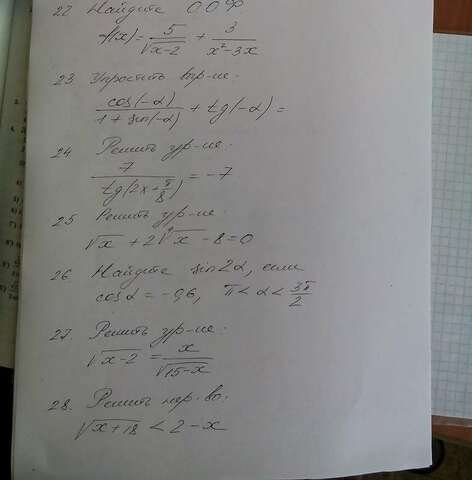 22 Найдите О.О.Ф
f(x) = 5/√(x-2) + 3/(x²-3x)
23 Упростить выр-ие:
cos(-α)/(1+sin(-α)) + tg(-α) =
24 Решить ур-ие:
7/tg(2x+π/8) = -7
25 Решить ур-ие:
√x + 2⁴√x - 8=0
26 Найдите sin2α, если
cosα = -0,6, π < α < 3π/2
27. Решить ур-ие:
√(x-2) = x/√(15-x)
28. Решить нер-во:
√(x+18) < 2-x